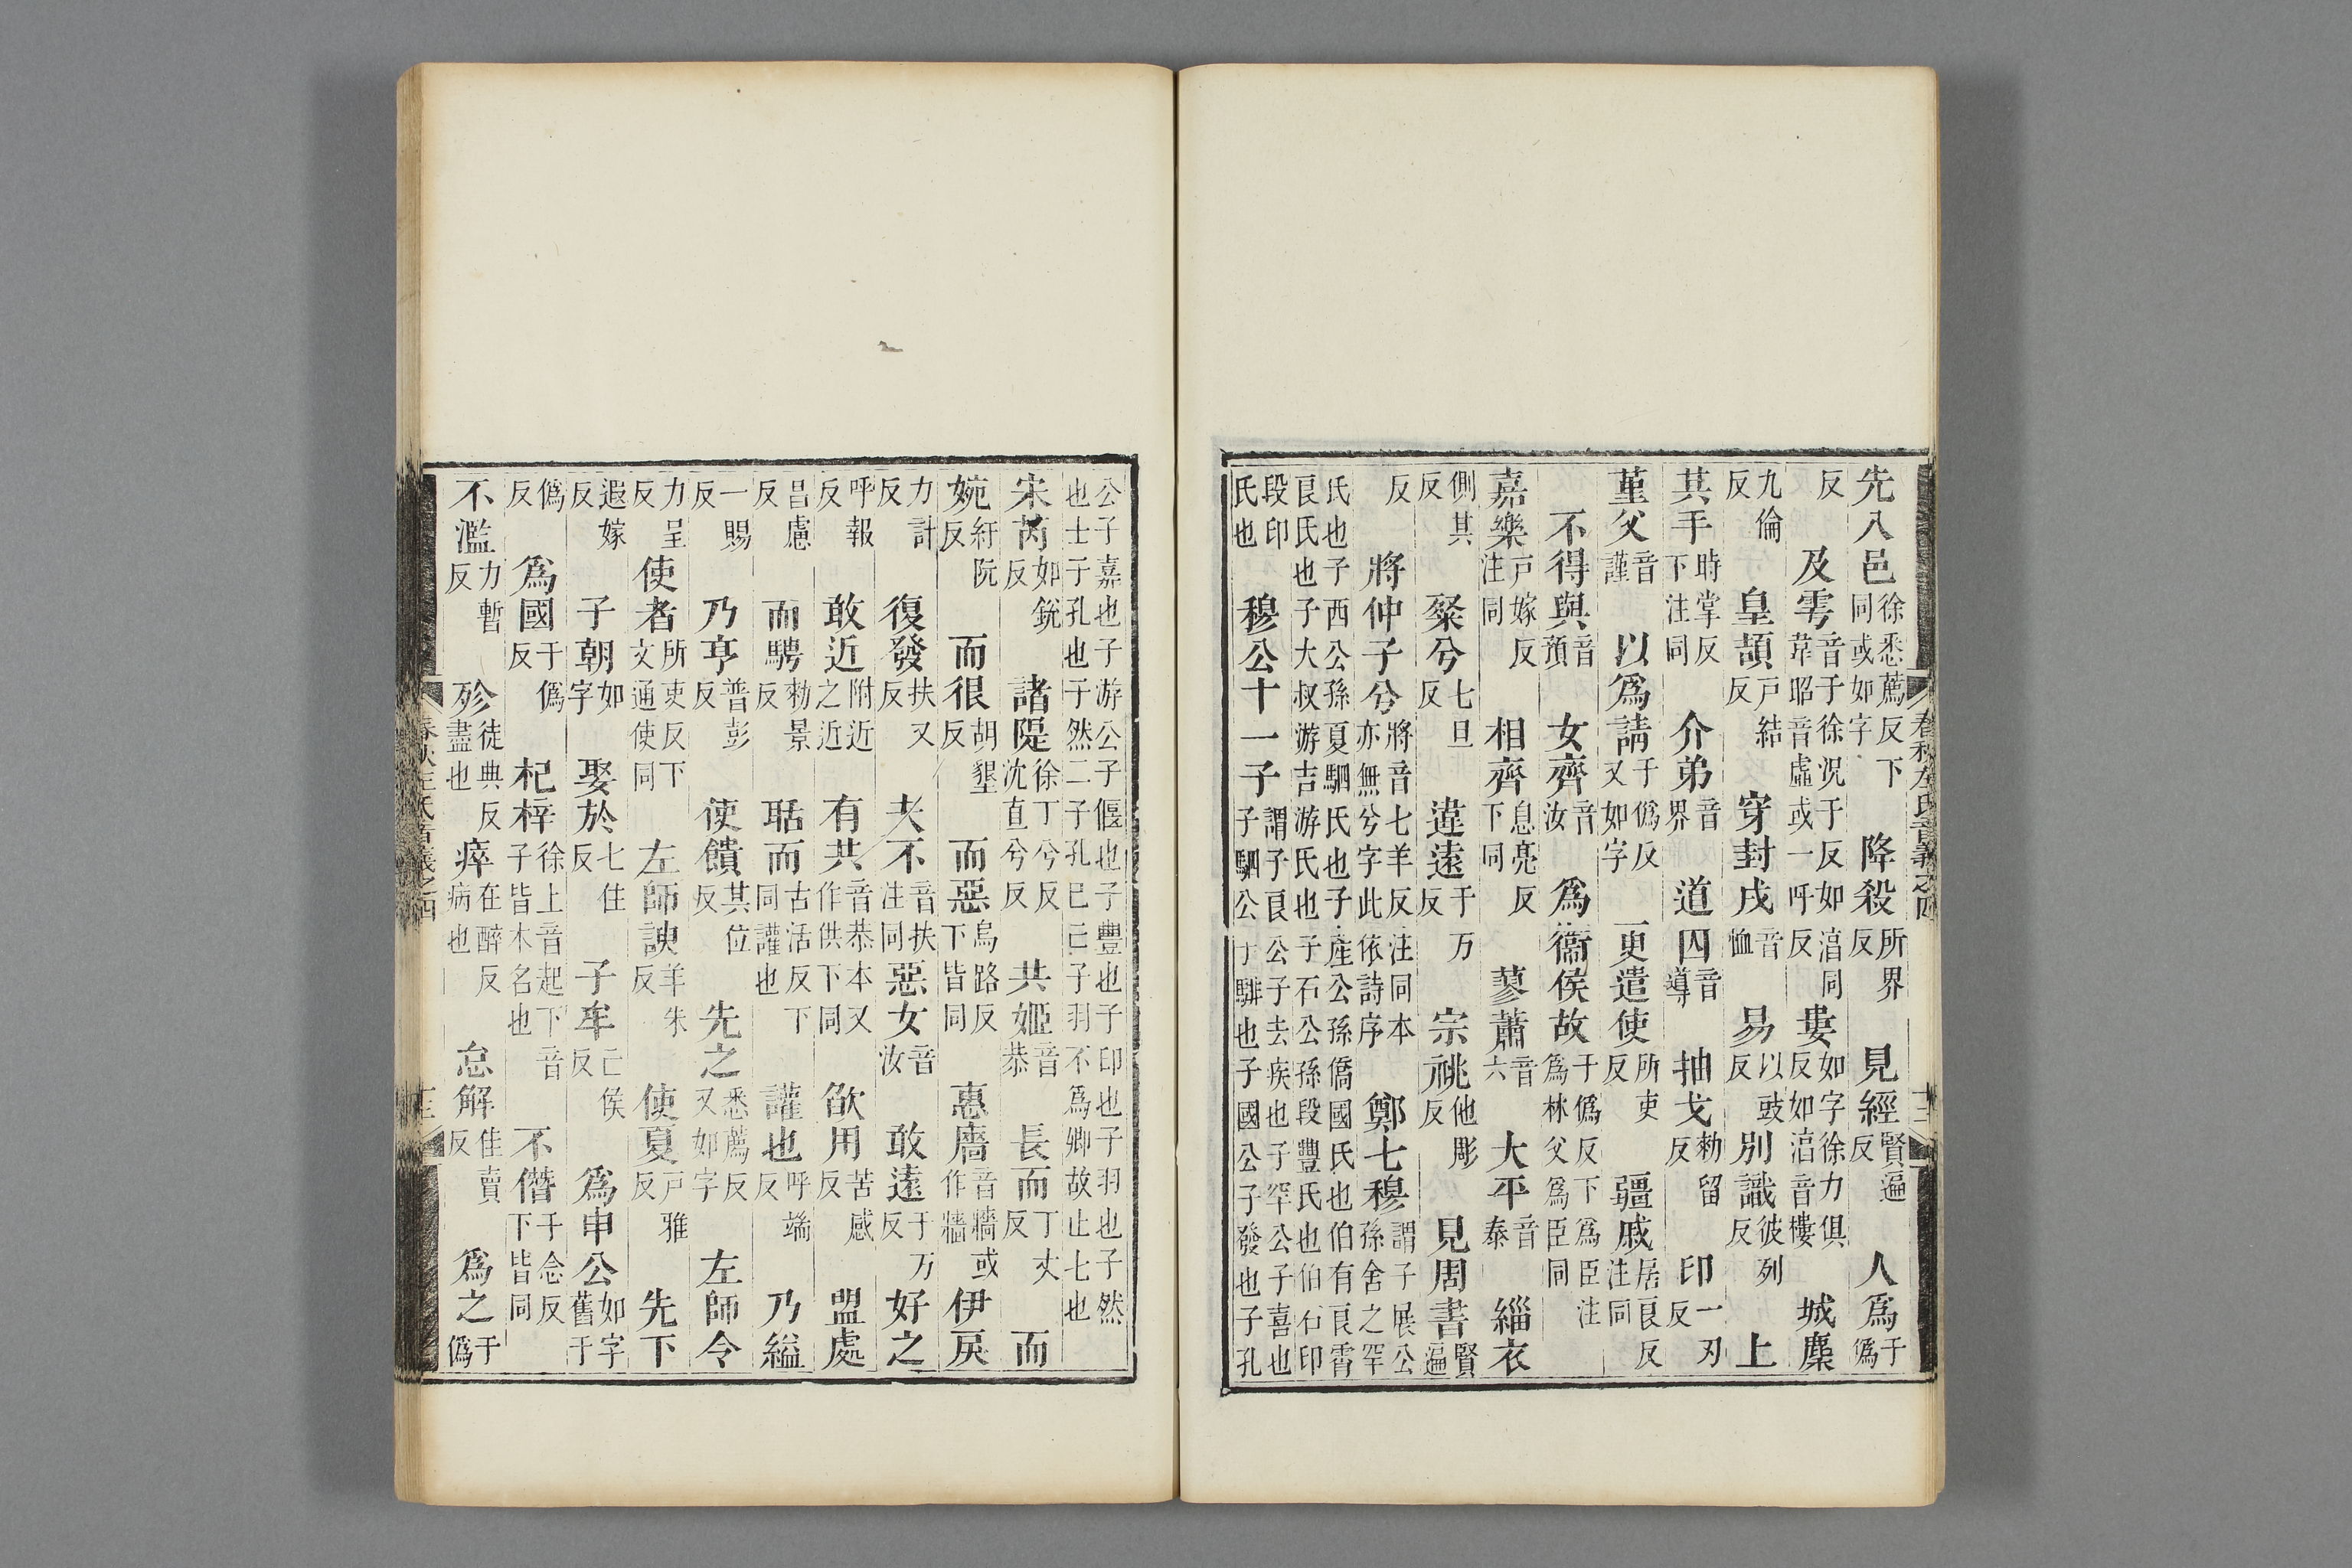 春秋左氏音義之四
先八邑徐悉薦反下同或如字降殺所界反見經賢遍反人爲于僞
反及雩音于徐況于反如淳同韋昭音虛或一呼反婁如字徐力俱反如淳音樓城麇
九倫反皇頡戶結反穿封戌音恤易以豉反別識彼列反上
其手時掌反下注同介弟音界道四音導抽戈勑留反印一刃反
菫父音謹以爲請于僞反又如字更遣使所吏反疆戚居良反注同
不得與音預女齊音汝爲衞侯故于僞反下爲臣注爲林父爲臣同
嘉樂戶嫁反注同相齊息亮反下同蓼蕭音六大平音泰緇衣
側其反粲兮七旦反違遠于万反宗祧他彫反見周書賢遍
反將仲子兮將音七羊反注同本亦無兮字此依詩序鄭七穆謂子展公孫舍之罕
氏也子西公孫夏駟氏也子產公孫僑國氏也伯有良霄良氏也子大叔游吉游氏也子石公孫段豐氏也伯石印
段印氏也穆公十一子謂子良公子去疾也子罕公子喜也子駟公子騑也子國公子發也子孔
公子嘉也子游公子偃也子豐也子印也子羽也子然也士子孔也子然二子孔已亡子羽不爲卿故止七也
宋芮如銳反諸隄徐丁兮反沈直兮反共姬音恭長而丁丈反而
婉紆阮反而很胡墾反而惡烏路反下皆同惠廧音牆或作牆伊戾
力計反復發扶又反夫不音扶注同惡女音汝敢遠于万反好之
呼報反敢近附近之近有共音恭本又作供下同欿用苦感反盟處
昌慮反而騁勑景反聒而古活反下同讙也讙也呼端反乃縊
一賜反乃亨普彭反使饋其位反先之悉薦反又如字左師令
力呈反使者所吏反下文通使同左師諛羊朱反使夏戶雅反先下
遐嫁反子朝如字娶於七住反子牟亡侯反爲申公如字舊于
僞反爲國于僞反杞梓徐上音起下音子皆木名也不僭子念反下皆同
不濫力暫反殄徒典反盡也瘁在醉反病也怠解佳賣反爲之于僞
春秋左氏音義之四 十三